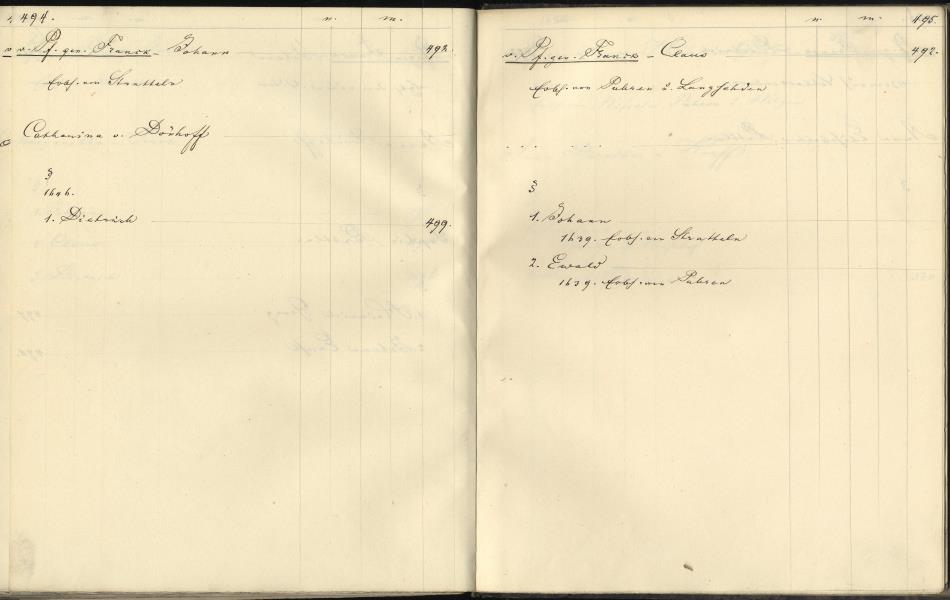 494. v. m.
v. Pf. gen. Franck - Johann 492.
Erbh. von Stratteln
Catharina v. Dönhoff
§
1646.
1. Dietrich 499.
v. m. 495.
v. Pf. gen. Franck - Claus 492.
Erbh. von Pubren u. Langsehden
. . . . . .
§
1. Johann
1639. Erbh. von Stratteln
2. Ewald
1639. Erbh. von Pubren